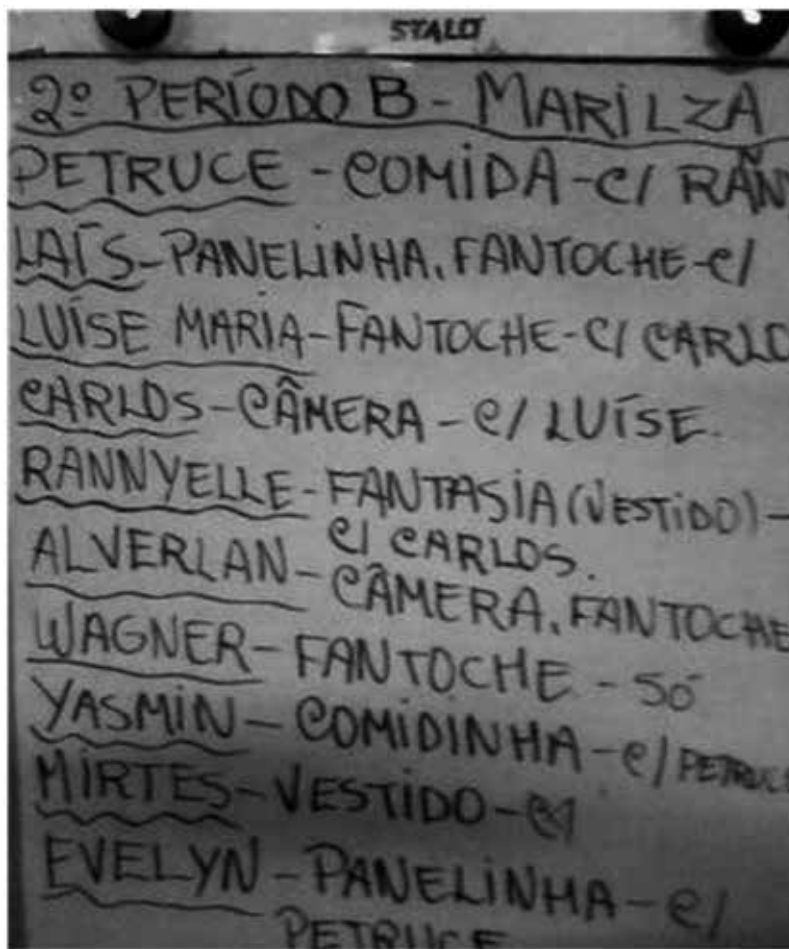 STALO
2º PERÍODO B - MARILZA
PETRUCE - COMIDA - C/ RAÑN
LAÍS - PANELINHA, FANTOCHE - C/
LUÍSE MARIA - FANTOCHE - C/ CARLO
CARLOS - CÂMERA - C/ LUÍSE.
RANNYELLE - FANTASIA (VESTIDO) -
C/ CARLOS.
ALVERLAN - CÂMERA, FANTOCHE
WAGNER - FANTOCHE - SÓ
YASMIN - COMIDINHA - C/ PETRUCE
MIRTES - VESTIDO -
EVELYN - PANELINHA - C/
PETRUCE